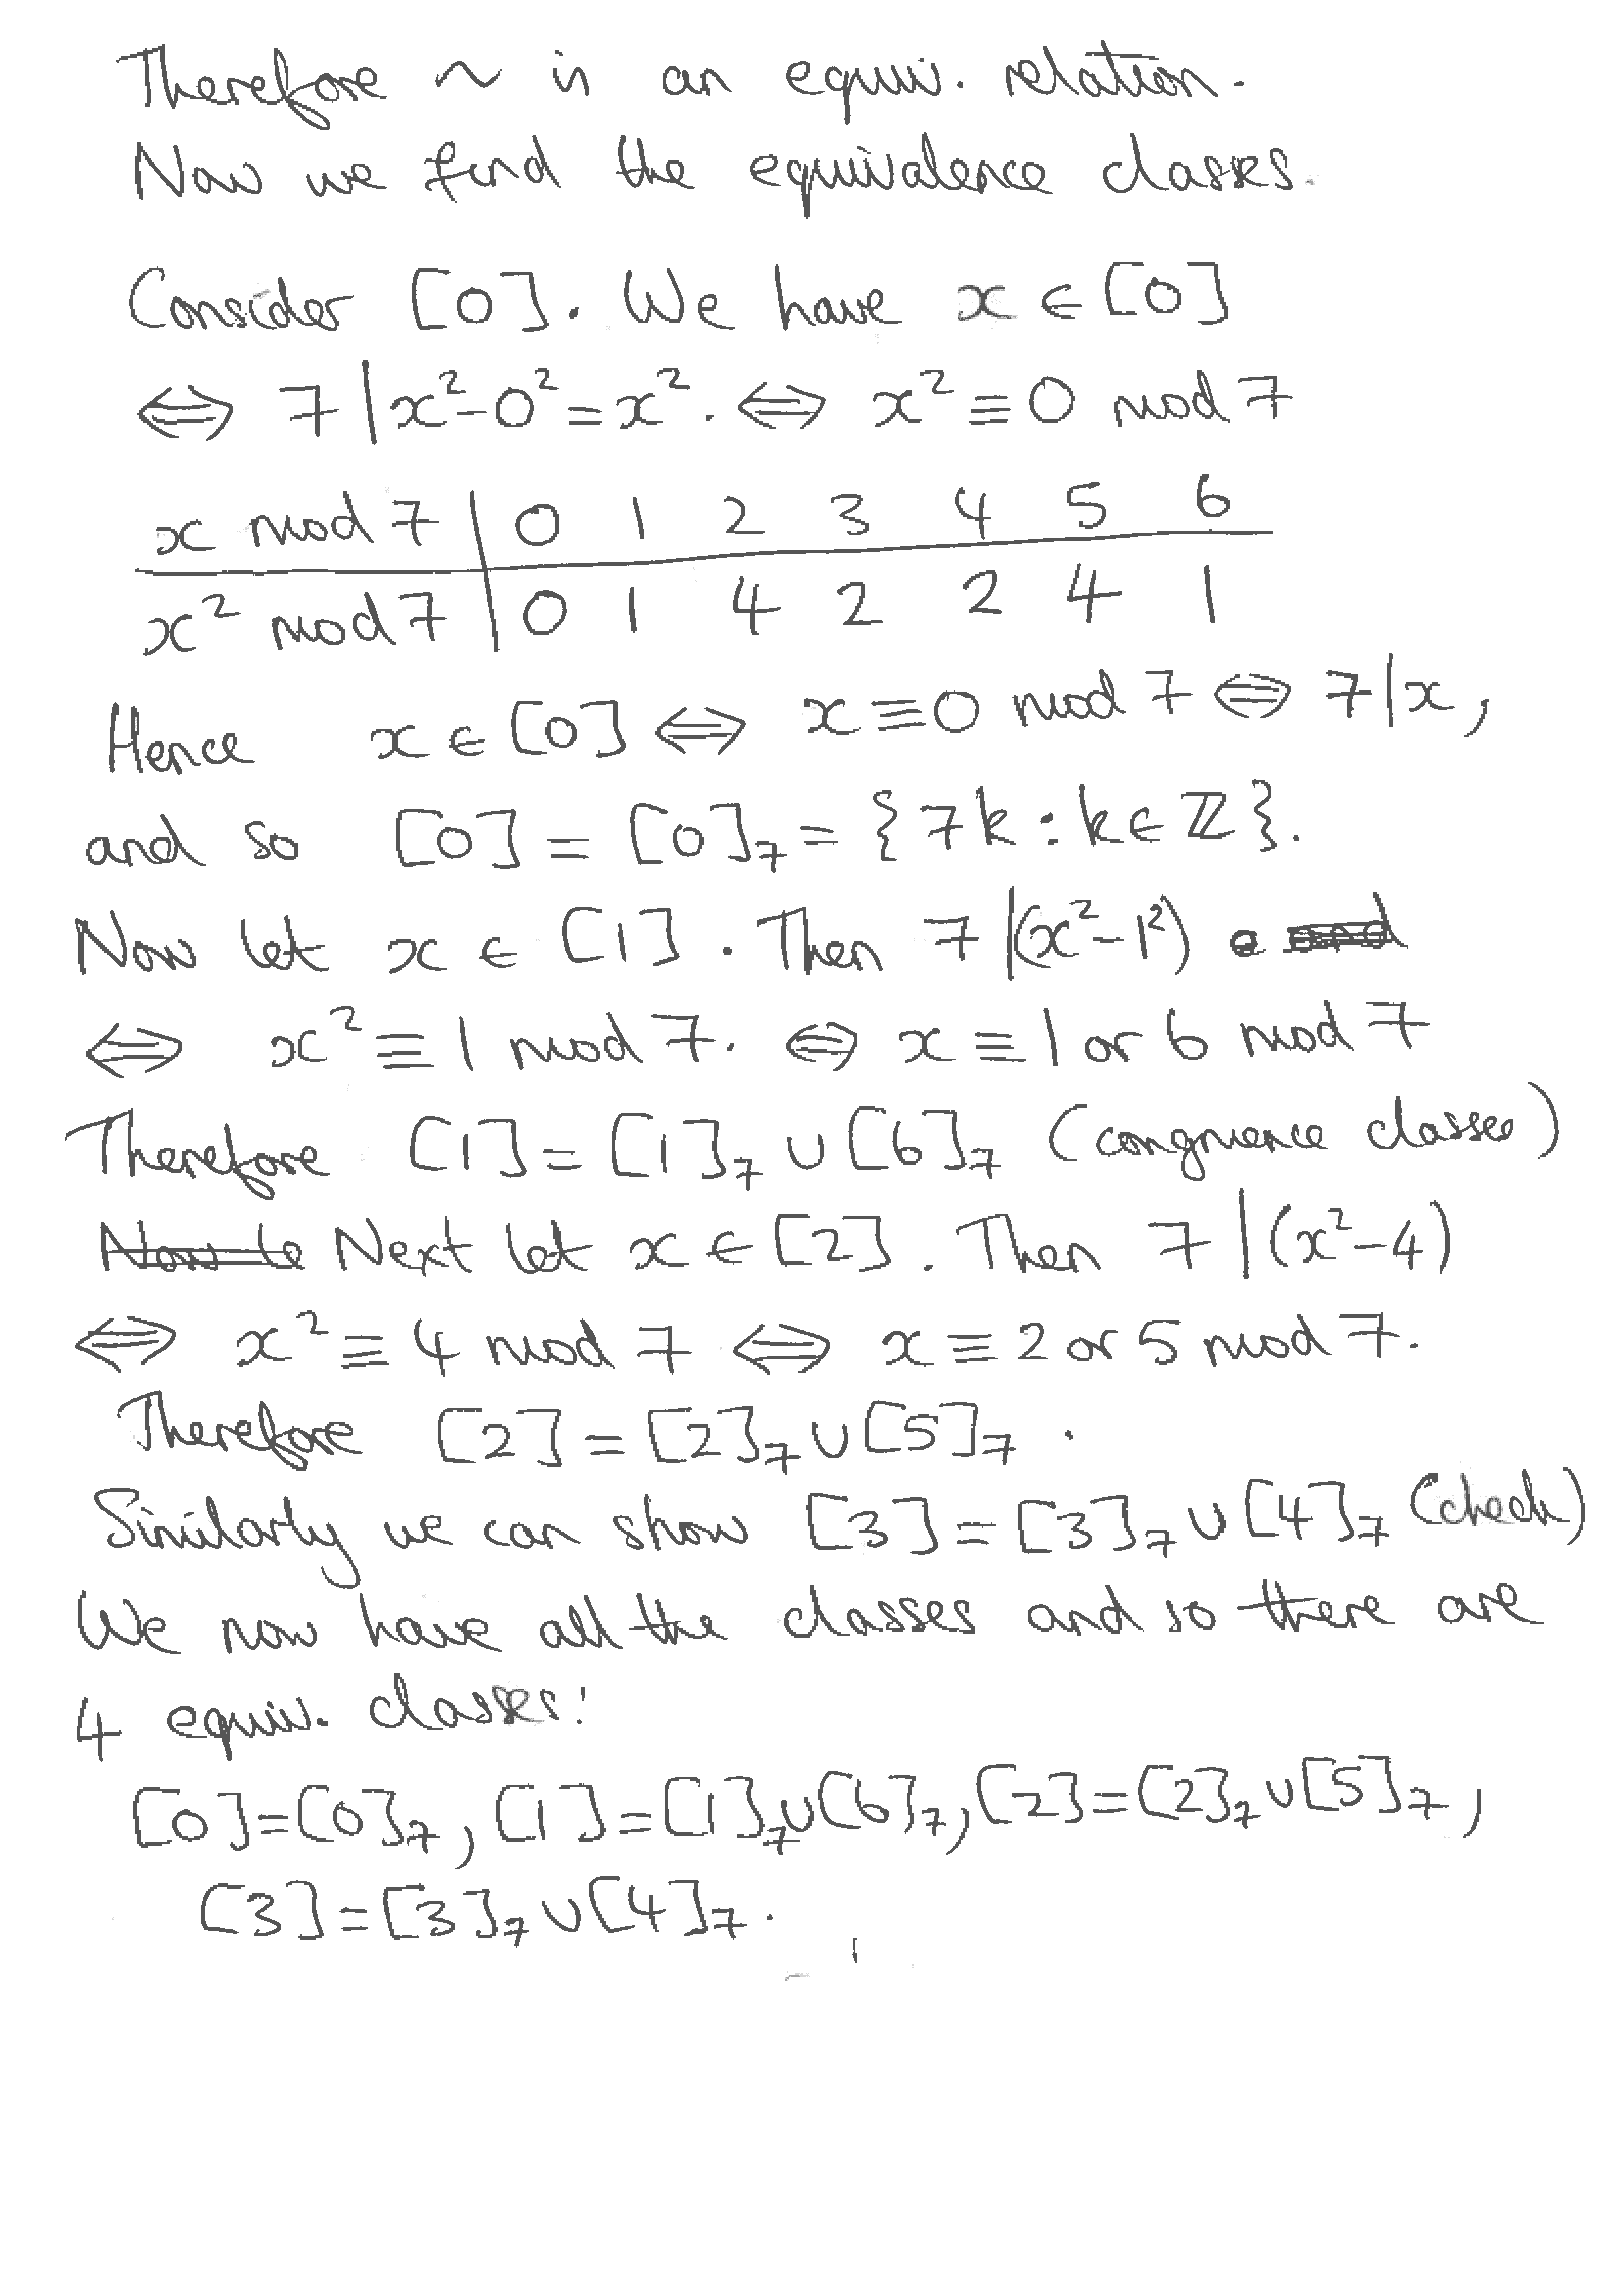 Therefore ~ is an equiv. relation.
Now we find the equivalence classes.
Consider [0]. We have x ∈ [0]
⇔ 7 | x² - 0² = x². ⇔ x² ≡ 0 mod 7
x mod 7 | 0 1 2 3 4 5 6
x² mod 7 | 0 1 4 2 2 4 1
Hence x ∈ [0] ⇔ x ≡ 0 mod 7 ⇔ 7 | x,
and so [0] = [0]₇ = {7k : k ∈ ℤ}.
Now let x ∈ [1]. Then 7 | (x² - 1²)
⇔ x² ≡ 1 mod 7. ⇔ x ≡ 1 or 6 mod 7
Therefore [1] = [1]₇ ∪ [6]₇ (congruence classes)
Next let x ∈ [2]. Then 7 | (x² - 4)
⇔ x² ≡ 4 mod 7 ⇔ x ≡ 2 or 5 mod 7.
Therefore [2] = [2]₇ ∪ [5]₇.
Similarly we can show [3] = [3]₇ ∪ [4]₇ (check)
We now have all the classes and so there are
4 equiv. classes:
[0] = [0]₇, [1] = [1]₇ ∪ [6]₇, [2] = [2]₇ ∪ [5]₇,
[3] = [3]₇ ∪ [4]₇.